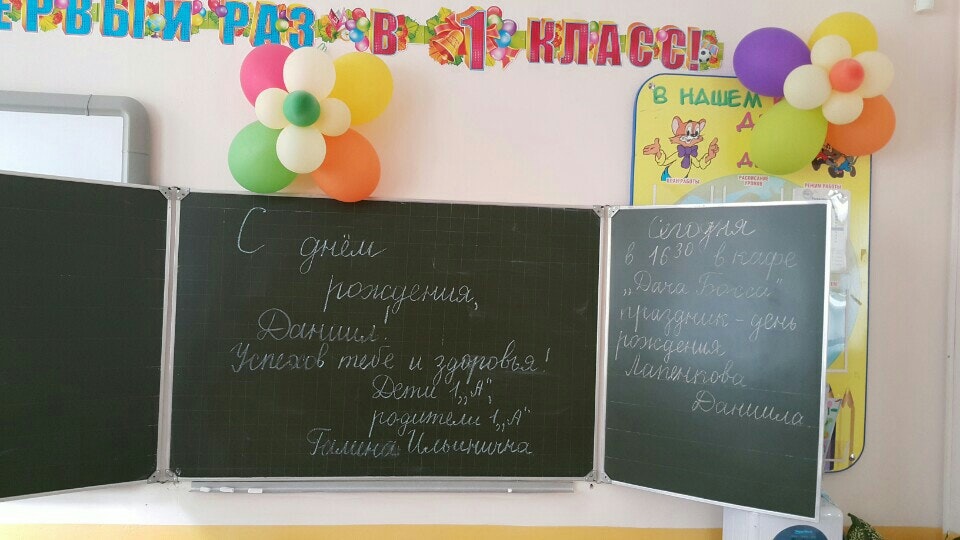 ЕРВЫЙ РАЗ В 1 КЛАСС!
В НАШЕМ
ПЛАН РАБОТЫ
РАСПИСАНИЕ УРОКОВ
РЕЖИМ РАБОТЫ
С днём
рождения,
Даниил!
Успехов тебе и здоровья!
Дети 1 „А",
родители 1 „А"
Галина Ильинична
Сегодня
в 16 30 в кафе
„Дача Босса"
праздник - день
рождения
Лапенкова
Даниила